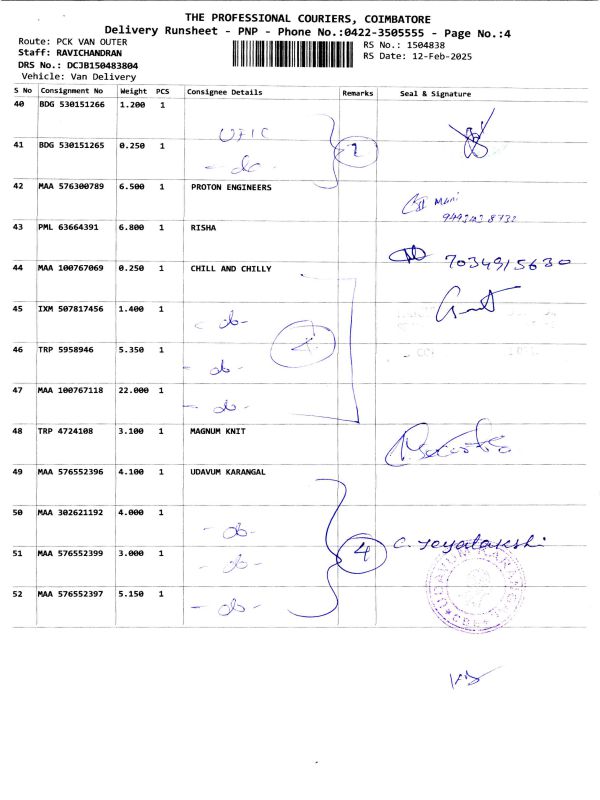 THE PROFESSIONAL COURIERS, COIMBATORE
Delivery Runsheet - PNP - Phone No.:0422-3505555 - Page No.:4
Route: PCK VAN OUTER
RS No.: 1504838
Staff: RAVICHANDRAN
RS Date: 12-Feb-2025
DRS No.: DCJB150483804
Vehicle: Van Delivery
S No Consignment No Weight PCS Consignee Details Remarks Seal & Signature
40 BDG 530151266 1.200 1
41 BDG 530151265 0.250 1
42 MAA 576300789 6.500 1 PROTON ENGINEERS
Mani
43 PML 63664391 6.800 1 RISHA
7034915630
44 MAA 100767069 0.250 1 CHILL AND CHILLY
45 IXM 507817456 1.400 1 - do -
46 TRP 5958946 5.350 1 - do -
47 MAA 100767118 22.000 1 - do -
48 TRP 4724108 3.100 1 MAGNUM KNIT
49 MAA 576552396 4.100 1 UDAVUM KARANGAL
50 MAA 302621192 4.000 1 - do -
51 MAA 576552399 3.000 1 - do - 4
52 MAA 576552397 5.150 1 - do -